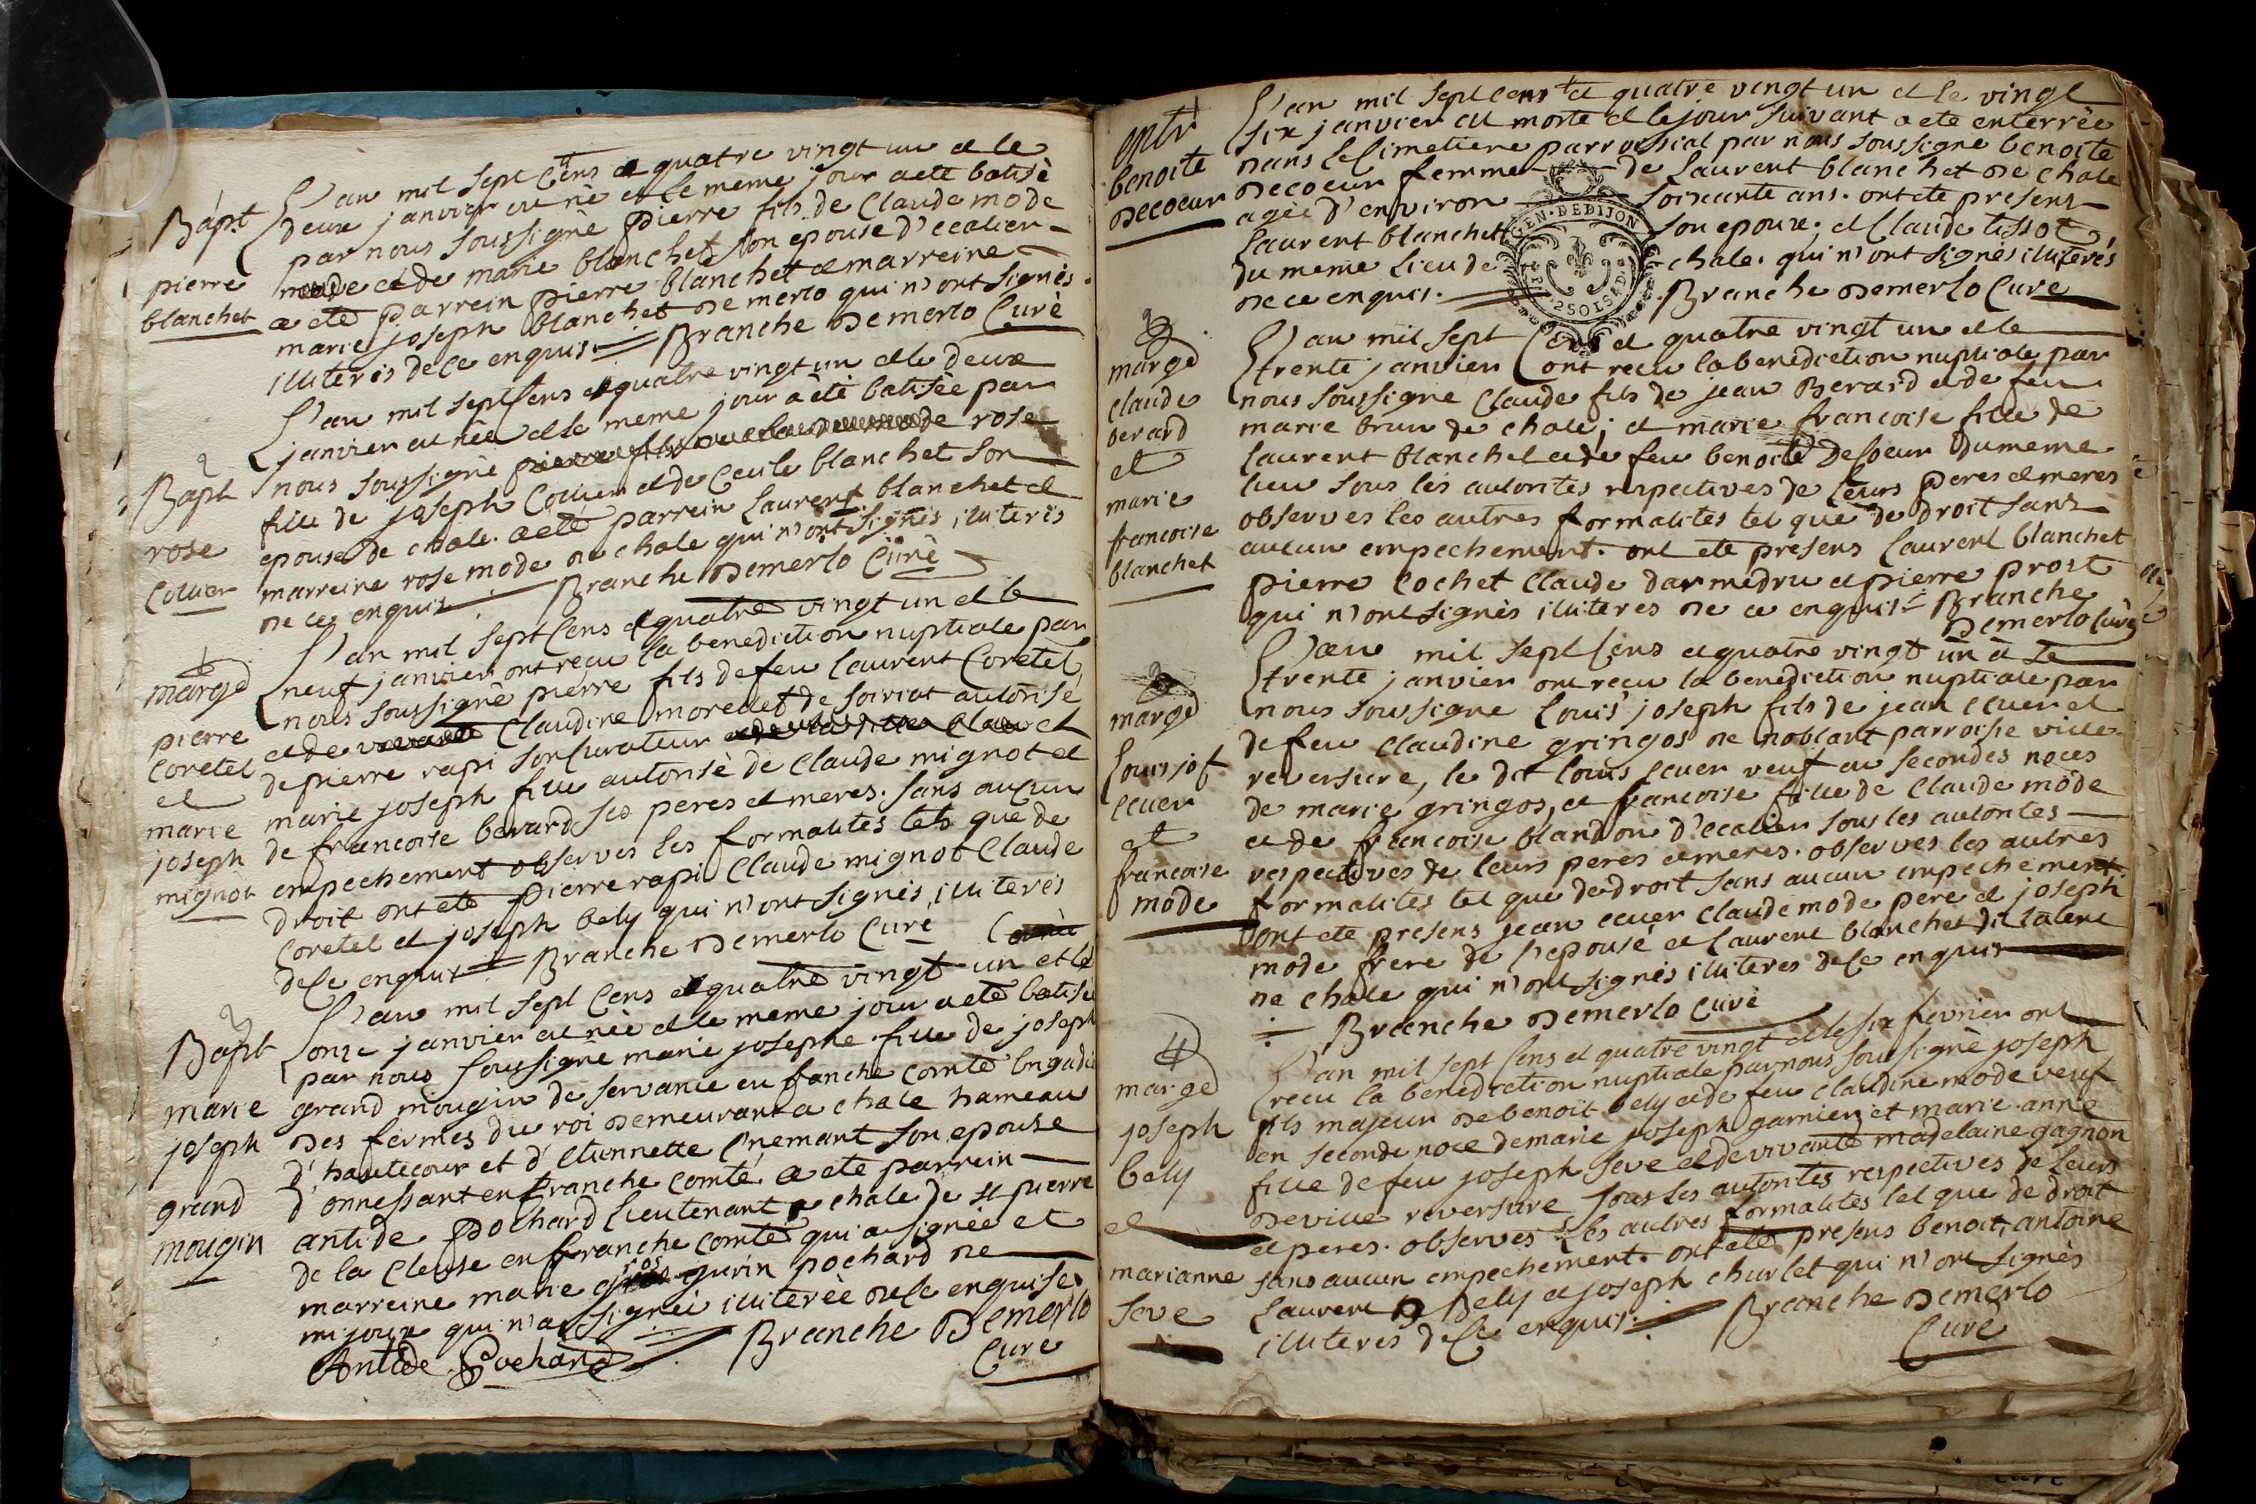 Bapt
pierre
blanchet
L'an mil sept cens et quatre vingt un et le
deux janvier est né et le meme jour a eté batisé
par nous soussigné pierre fils de Claude mode
et de marie blanchet son epouse d'ecalier
a eté parrein pierre blanchet et marreine
marie joseph blanchet de merlo qui n'ont signés
illiterés de ce enquis Branche Demerlo Curé
2
Bapt
rose
Coluer
L'an mil sept cens et quatre vingt un et le deux
janvier est née et le meme jour a été batisée par
nous soussigné rose
fille de joseph et de Cecile blanchet son
epouse de chale. a eté parrein Laurent blanchet et
marreine rose mode de chale qui n'ont signés illiterés
de ce enquis Branche Demerlo Curé
1
marge
pierre
Coretel
et
marie
joseph
mignot
L'an mil sept cens et quatre vingt un et le
neuf janvier ont reçu la benediction nuptiale par
nous soussigné pierre fils de feu laurent Coretel
et de Claudine morellet de soiriat autorisé
de pierre rapi son Curateur et
marie joseph fille autorisé de Claude mignot et
de francoise berard ses peres et meres. sans aucun
empechement observes les formalités tels que de
droit ont eté pierre rapi Claude mignot Claude
Coretel et joseph bely qui n'ont signés, illiterés
de ce enquis Branche Demerlo Curé
3
Bapt
marie
joseph
grand
mougin
L'an mil sept cens et quatre vingt un et le
onze janvier est née et le meme jour a eté batisée
par nous soussigné marie josephe fille de joseph
grand mougin de servance en franche comté brigadier
des fermes du roi demeurant a chale hameau
d'hautecour et d'etiennette Cnemant son epouse
d'onnessant en franche comté a eté parrein
antide pochard lieutenant a chale de st pierre
de la Cleuse en franche comté qui a signée et
marreine marie gros gurin pochard de
mijoux qui n'a signée illiterée de ce enquise
Antide Pochard Branche Demerlo
Curé
1
entr
benoite
decoeur
L'an mil sept cens et quatre vingt un et le vingt
six janvier est morte et le jour suivant a eté enterrée
dans le Cimetiere parroissial par nous soussigné benoite
decoeur femme de laurent blanchet de chale
agée d'environ soixante ans. ont eté presens
laurent blanchet son epoux; et Claude tissot
du meme lieu de chale. qui n'ont signés illiterés
de ce enquis. Branche Demerlo Curé
GEN. DE DIJON
2 SOLS 4 D
2
marge
claude
berard
et
marie
francoise
blanchet
L'an mil sept cens et quatre vingt un et le
trente janvier ont recu la benediction nuptiale par
nous soussigné Claude fils de jean Berard et de feu
marie brun de chale; et marie francoise fille de
laurent blanchet et de feu benoite Decoeur du meme
lieu sous les autorités respectives de leurs peres et meres
observes les autres formalités tel que de droit sans
aucun empechement. ont eté presens laurent blanchet
pierre Cochet Claude darmedru et pierre prost
qui n'ont signés illiteres de ce enquis Branche
Demerlo Curé
3
marge
louis jos
ecuer
et
francoise
mode
L'an mil sept cens et quatre vingt un et le
trente janvier ont recu la benediction nuptiale par
nous soussigné louis joseph fils de jean ecuer et
de feu claudine gringos de noblant parroise ville
reversure, le dit louis ecuer veuf en secondes noces
de marie gringos, et francoise fille de Claude mode
et de francoise blandon d'ecalier sous les autorités
respectives de leurs peres et meres. observes les autres
formalités tel que de droit sans aucun empechement.
ont eté presens jean ecuer Claude mode pere et joseph
mode frere de l'epouse et laurent blanchet dit talent
de chale qui n'ont signés illiteres de ce enquis
Branche Demerlo Curé
4
marge
joseph
bely
et
marianne
seve
L'an mil sept cens et quatre vingt et le six fevrier ont
recu la benediction nuptiale par nous soussigné joseph
fils majeur de benoit bely et de feu claudine mode veuf
en seconde noce de marie joseph garnier et marie anne
fille de feu joseph seve et de vivante madelaine gagnon
de ville reversure sous les autorités respectives de leurs
et peres. observes les autres formalités tel que de droit
sans aucun empechement. ont eté presens benoit, antoine
laurent Bely et joseph churlet qui n'ont signés
illiterés de ce enquis. Branche Demerlo
Curé